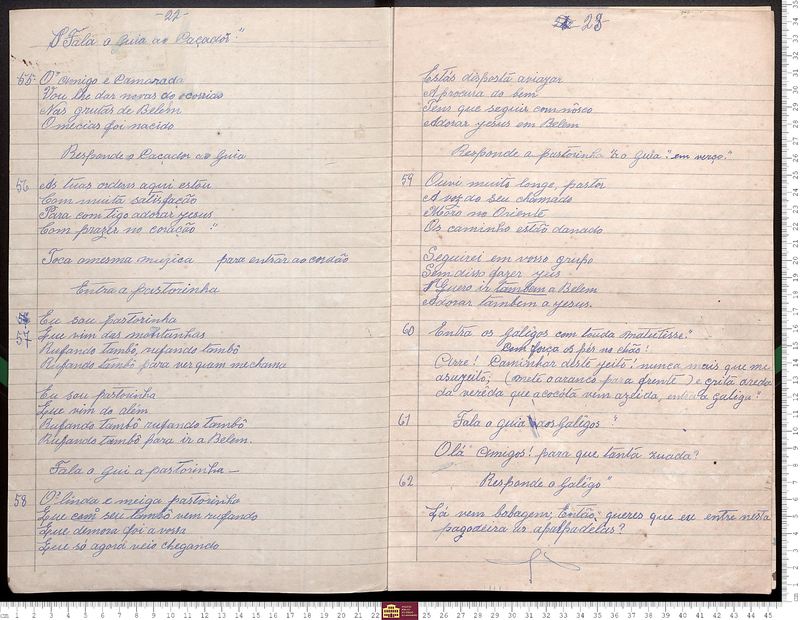 -22-
"Fala o Guia ao Caçador"
55- O' amigo e Camarada
Vou lhe dar novas do ocorrido
Nas grutas de Belém
O mecias foi nacido
Responde o Caçador ao Guia
56 As tuas ordens aqui estou
Com muita satisfação
Para com tigo adorar yesus
Com prazer no coração "
Toca a mesma muzica para entrar ao cordão
Entra a pastorinha
57 Eu sou pastorinha
Que vim das montanhas
Rufando tambô, rufando tambô
Rufando tambô para ver quem me chama
Eu sou pastorinha
Que vim do além
Rufando tambô rufando tambô
Rufando tambô para ir a Belem.
Fala o gui a pastorinha —
58 O' linda e meiga pastorinha
Que com seu tambô vem rufando
Que demora foi a vossa
Que so agora veio chegando
23
Estás disposta aviazar
A procura do bem
Tens que seguir com nôsco
Adorar yesus em Belem
Responde a pastorinha "ao Guia" "em verço."
59 Ouvi muito longe, pastor
A voz do seu chamado
Moro no Oriente
Os caminho estão danado
Seguirei em vosso grupo
Sem disso fazer yus
Quero ir tambem a Belem
Adorar tambem a yesus.
60 Entra os galêgos com touda matutisse."
Com força os pés no chão!
Cirre! Caminhar deste yeito! nunca mais que me
asuyeito; (mete o aranco para frente) e grita
da vereda que acocita vem azeida, entra a galega"
61 Fala o guia aos Galêgos "
Olá Amigos! para que tanta zuada?
62 Responde o Galêgo"
Lá vem bobagem; Então, queres que eu entre nesta
pagodeira as apalpadelas?